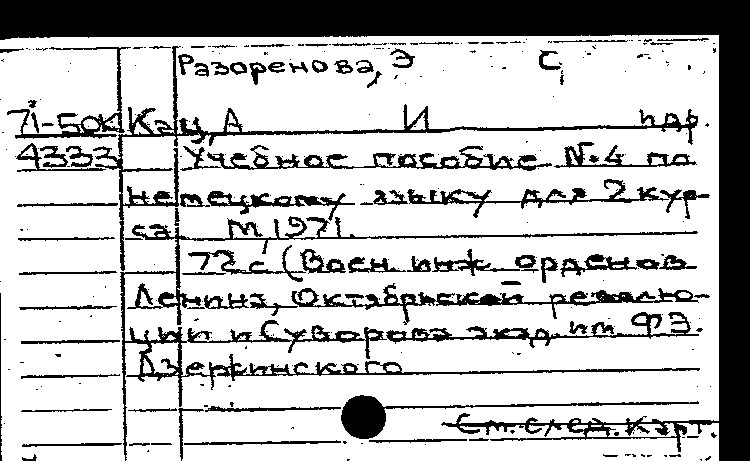 Разоренова, Э С
71-50К Кац, А И пдр.
4333 Учебное пособие №4 по
немецкому языку для 2 кур-
са М, 1971.
72 с (Воен. инж. орденов
Ленина, Октябрьской револю-
ции и Суворова акад. им. ФЭ.
Дзержинского
См. след. карт.